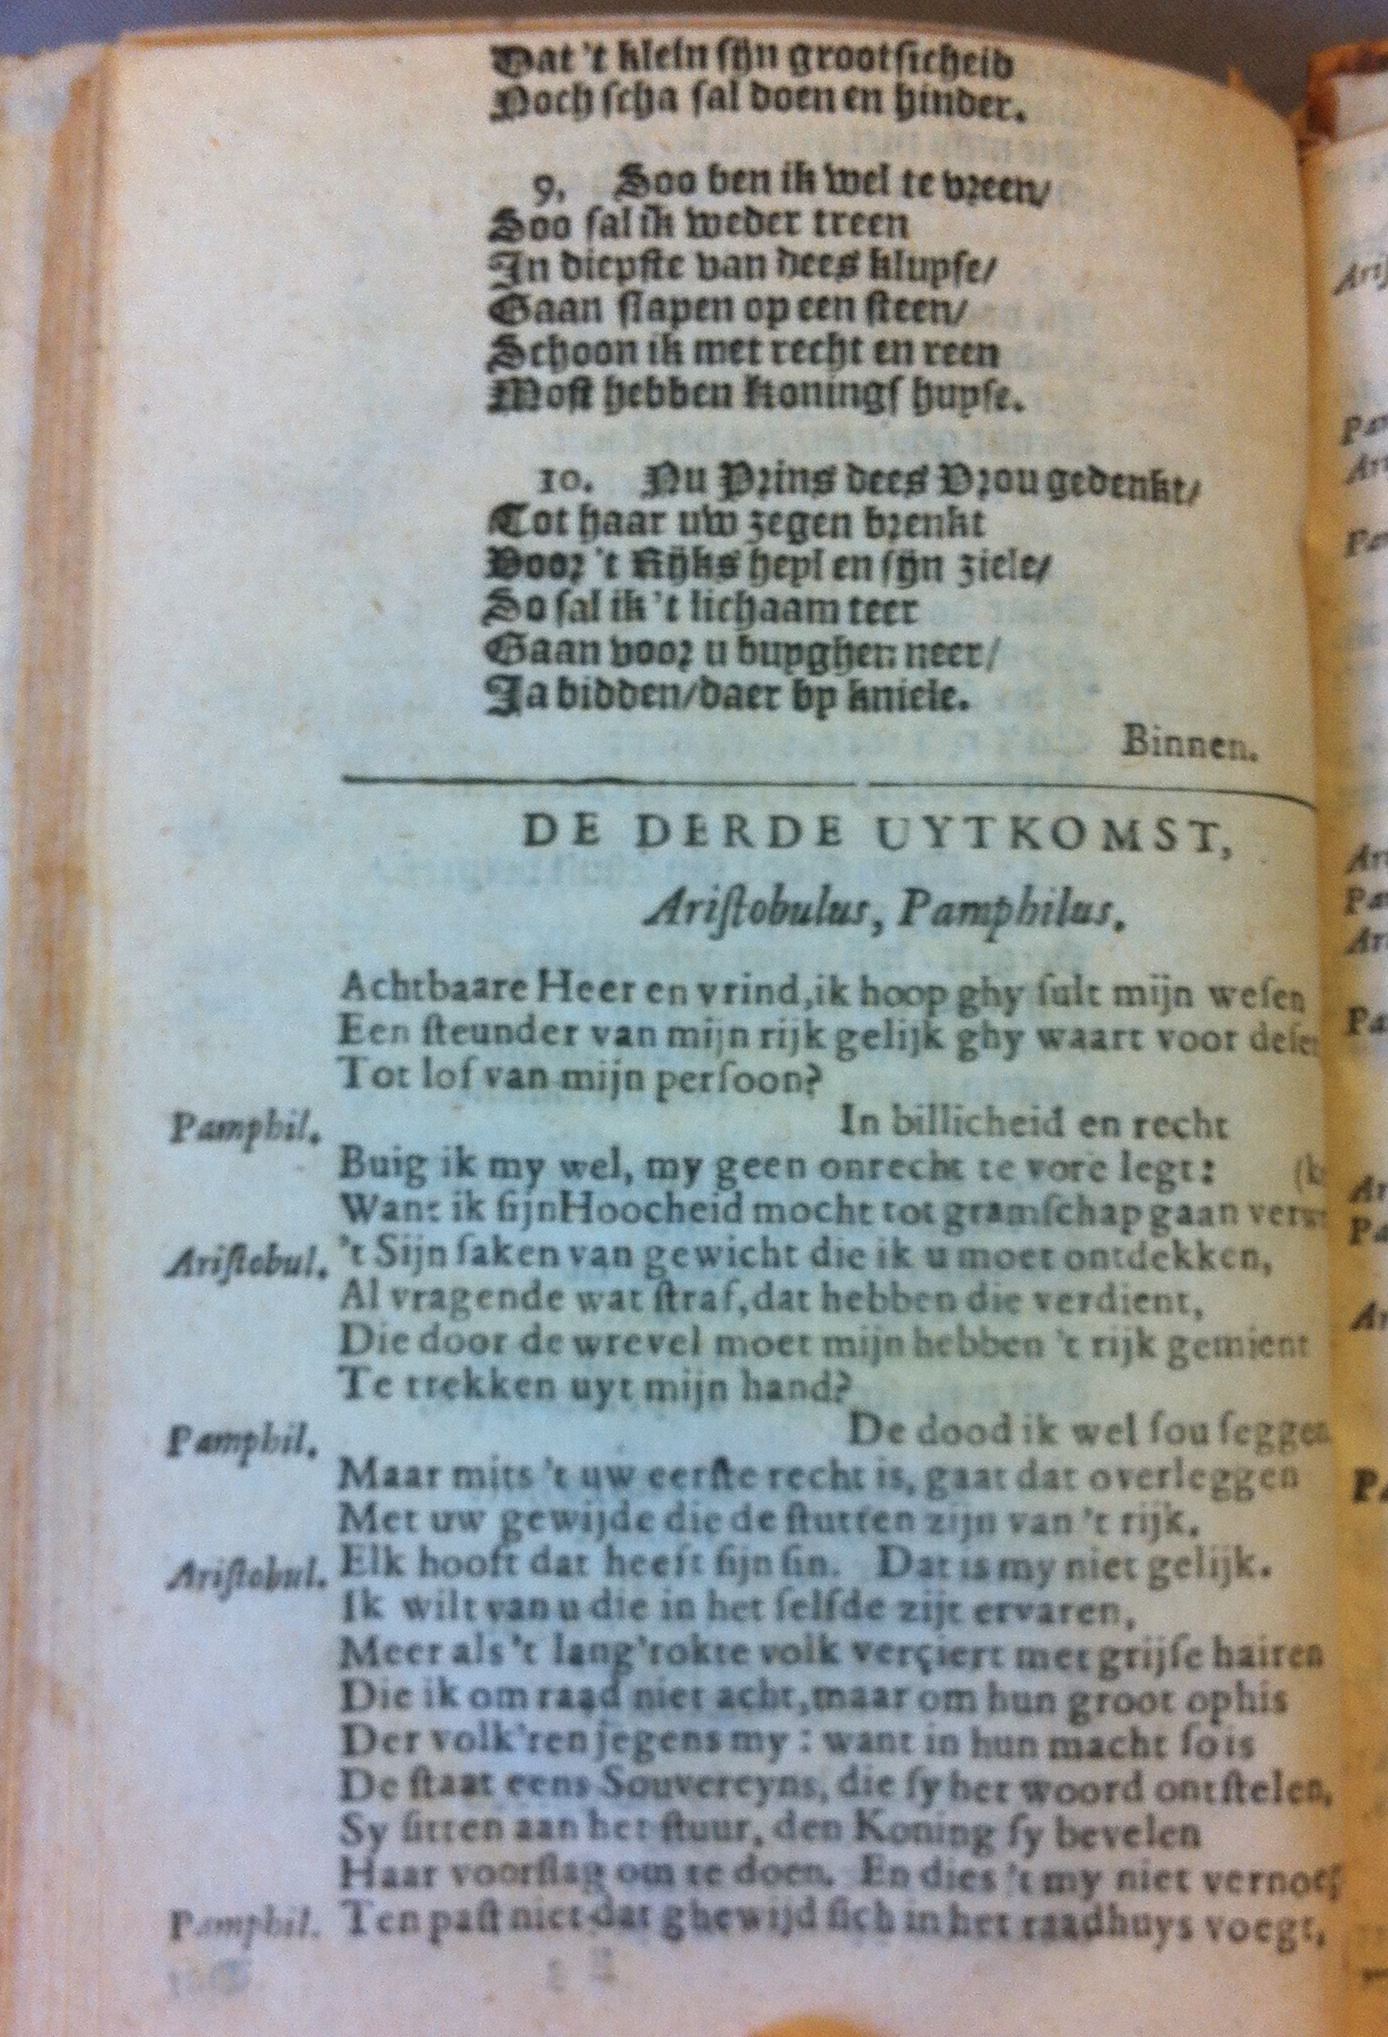 Dat 't klein sijn grootsicheid
Noch scha sal doen en hinder.
9. Soo ben ik wel te vreen/
Soo sal ik weder treen
In diepste van dees kluyse/
Gaan slapen op een steen/
Schoon ik met recht en reen
Most hebben konings huyse.
10. Nu Prins dees Vrou gedenkt/
Tot haar uw zegen brenkt
Voor 't Rijks heyl en sijn ziele/
So sal ik 't lichaam teer
Gaan voor u buyghen neer/
Ja bidden/daer by kniele.
Binnen.
DE DERDE UYTKOMST,
Aristobulus, Pamphilus.
Achtbaare Heer en vrind, ik hoop ghy sult mijn wesen
Een steunder van mijn rijk gelijk ghy waart voor desen
Tot lof van mijn persoon?
Pamphil. In billicheid en recht
Buig ik my wel, my geen onrecht te vore legt:
Want ik sijn Hoocheid mocht tot gramschap gaan
Aristobul. 't Sijn saken van gewicht die ik u moet ontdekken,
Al vragende wat straf, dat hebben die verdient,
Die door de wrevel moet mijn hebben 't rijk gemient
Te trekken uyt mijn hand?
Pamphil. De dood ik wel sou seggen
Maar mits 't uw eerste recht is, gaat dat overleggen
Met uw gewijde die de stutten zijn van 't rijk.
Aristobul. Elk hooft dat heeft sijn sin. Dat is my niet gelijk.
Ik wilt van u die in het selfde zijt ervaren,
Meer als 't lang'rokte volk verçiert met grijse hairen
Die ik om raad niet acht, maar om hun groot ophis
Der volk'ren jegens my: want in hun macht so is
De staat eens Souvereyns, die sy het woord ontstelen,
Sy sitten aan het stuur, den Koning sy bevelen
Haar voorslag om te doen. En dies 't my niet
Pamphil. Ten past niet dat ghewijd sich in het raadhuys voegt,